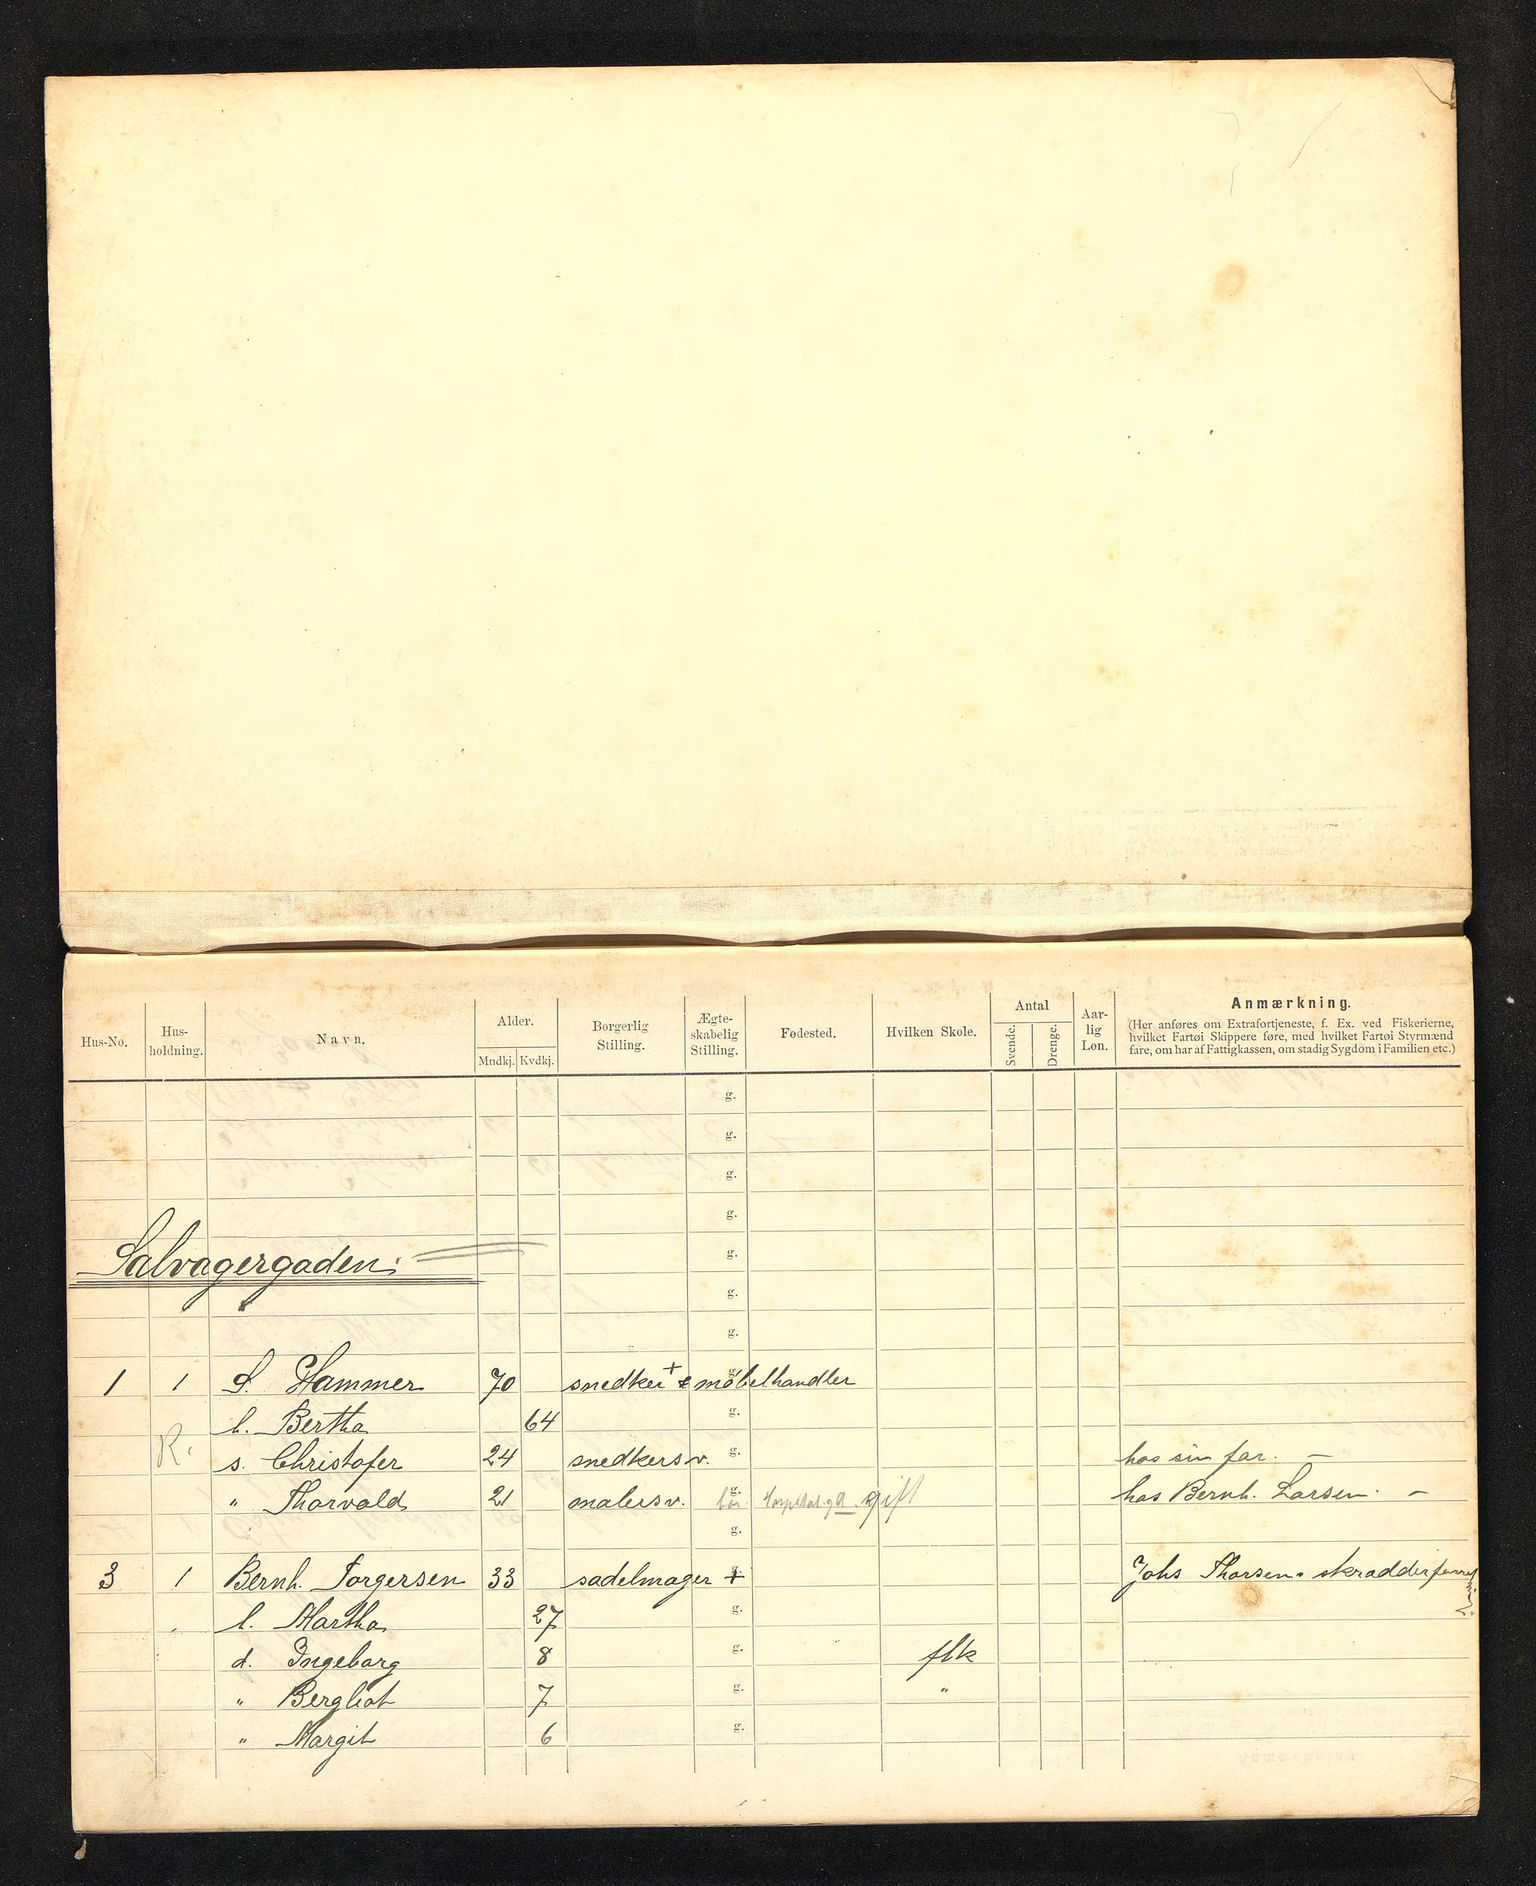 Hus-No. Hus-holdning. Navn. Alder. Mndkj. Kvdkj. Borgerlig Stilling. Ægte-skabelig Stilling. Fødested. Hvilken Skole. Antal Svende. Drenge. Aar-lig Løn. Anmærkning.
(Her anføres om Extrafortjeneste, f. Ex. ved Fiskerierne,
hvilket Fartøi Skippere føre, med hvilket Fartøi Styrmænd
fare, om har af Fattigkassen, om stadig Sygdom i Familien etc.)
g.
g.
g.
g.
Salvagergaden: g.
g.
g.
1 1 S. Hammer 70 snedker + & møbelhandler g.
h. Bertha 64 g.
R. s. Christofer 24 snedkersv. g. hos sin far. —
" Thorvald 21 malersv. g. bor Hospitalsgd. gift hos Bernh. Larsen. —
g.
3 1 Bernh. Torgersen 33 sadelmager + g. Johs Thorsen skrædderforret
h. Martha 27 g.
d. Ingeborg 8 g. flk
" Bergliot 7 g. "
" Margit 6 g.